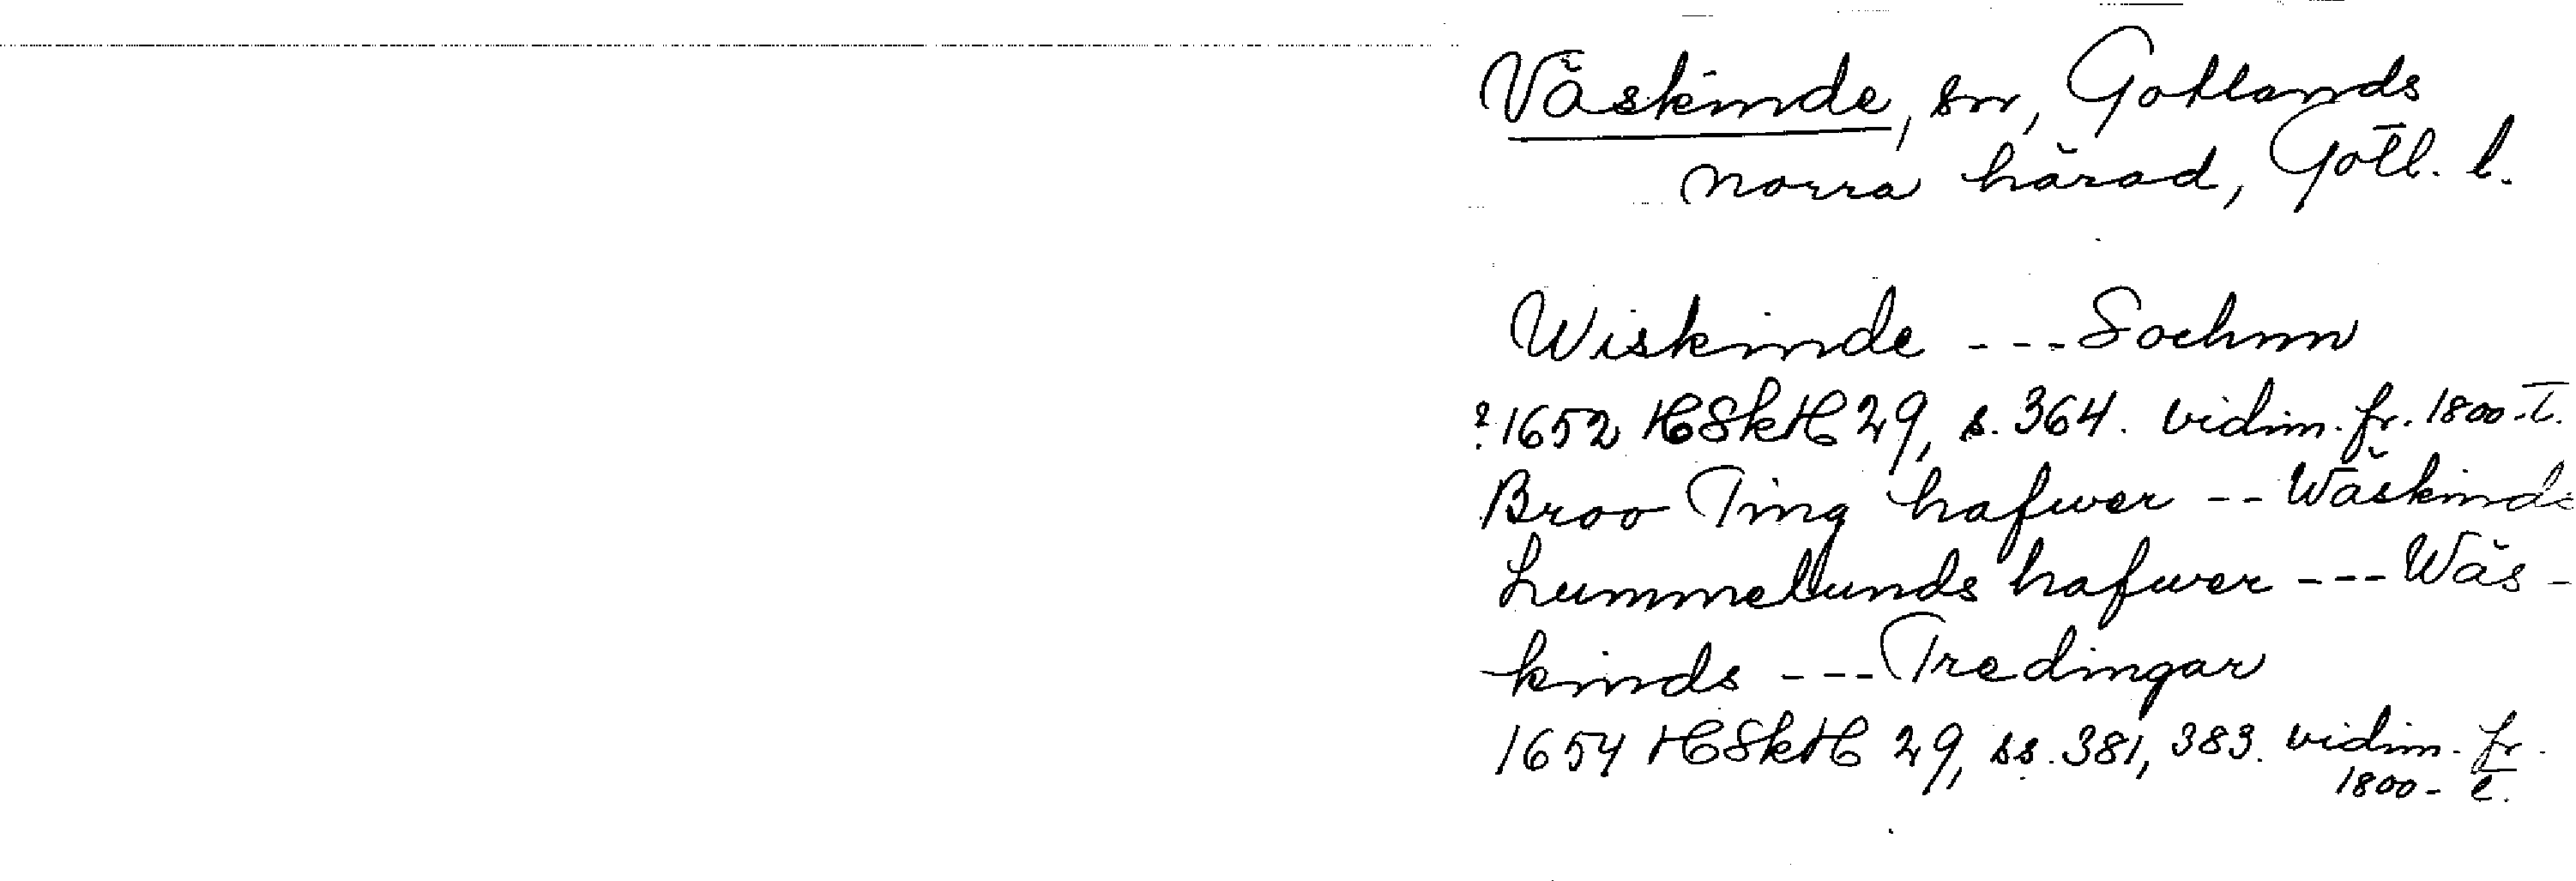 Väskinde, sn, Gotlands
norra härad, Gotl. l.
Wiskinde --- Sochnn
? 1652 HSkH 29, s. 364. vidim. fr. 1800-t.
Broo Ting hafwer -- Wäskinds
Lummelunds hafwer --- Wäs-
kinds --- Tredingar
1654 HSkH 29, ss. 381, 383. vidim. fr.
1800-t.